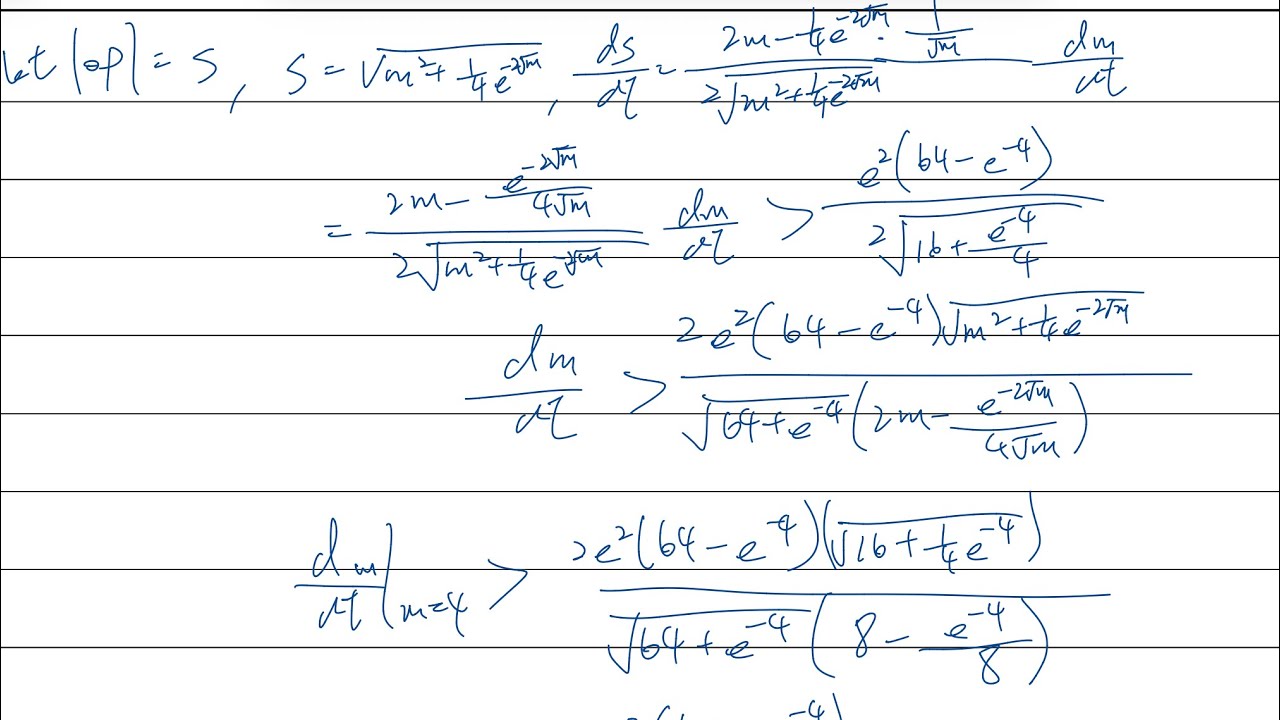 let |op| = s, s = √(m² + ¼e^(-2√m)), ds/dt = (2m - ¼e^(-2√m) · 1/√m) / (2√(m² + ¼e^(-2√m))) dm/dt
= (2m - e^(-2√m)/(4√m)) / (2√(m² + ¼e^(-2√m))) dm/dt > e²(64 - e^(-4)) / (2√(16 + e^(-4)/4))
dm/dt > 2e²(64 - e^(-4))√(m² + ¼e^(-2√m)) / (√(64 + e^(-4)) (2m - e^(-2√m)/(4√m)))
dm/dt |m=4 > 2e²(64 - e^(-4))(√(16 + ¼e^(-4))) / (√(64 + e^(-4)) (8 - e^(-4)/8))